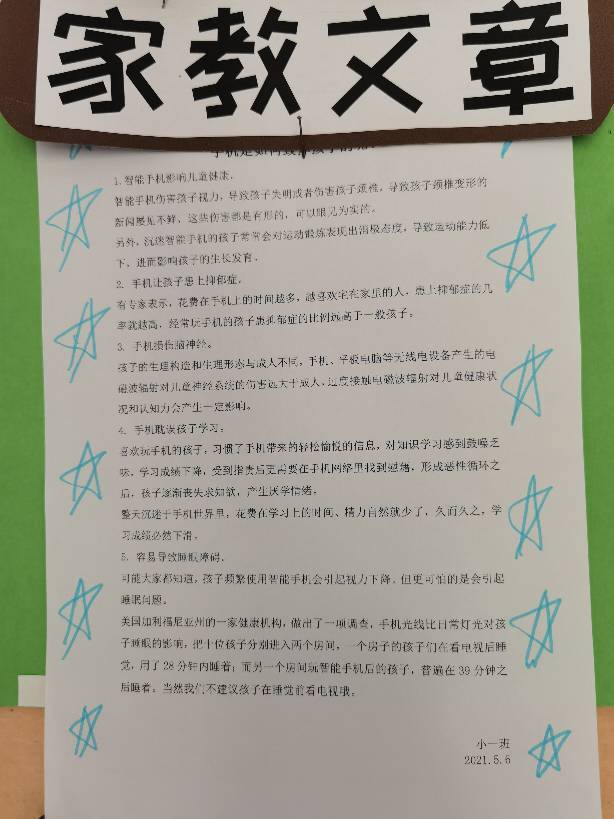 家教文章
1.智能手机影响儿童健康.
智能手机伤害孩子视力，导致孩子失明或者伤害孩子颈椎，导致孩子颈椎变形的
新闻屡见不鲜，这些伤害都是有形的，可以眼见为实的。
另外，沉迷智能手机的孩子常常会对运动锻炼表现出消极态度，导致运动能力低
下，进而影响孩子的生长发育。
2. 手机让孩子患上抑郁症。
有专家表示，花费在手机上的时间越多，越喜欢宅在家里的人，患上抑郁症的几
率就越高，经常玩手机的孩子患抑郁症的比例远高于一般孩子。
3. 手机损伤脑神经。
孩子的生理构造和生理形态与成人不同，手机、平板电脑等无线电设备产生的电
磁波辐射对儿童神经系统的伤害远大于成人，过度接触电磁波辐射对儿童健康状
况和认知力会产生一定影响。
4. 手机耽误孩子学习。
喜欢玩手机的孩子，习惯了手机带来的轻松愉悦的信息，对知识学习感到鼓噪乏
味，学习成绩下降，受到指责后更需要在手机网络里找到慰藉，形成恶性循环之
后，孩子逐渐丧失求知欲，产生厌学情绪。
整天沉迷于手机世界里，花费在学习上的时间、精力自然就少了，久而久之，学
习成绩必然下滑。
5. 容易导致睡眠障碍.
可能大家都知道，孩子频繁使用智能手机会引起视力下降。但更可怕的是会引起
睡眠问题。
美国加利福尼亚州的一家健康机构，做出了一项调查，手机光线比日常灯光对孩
子睡眠的影响，把十位孩子分别进入两个房间，一个房子的孩子们在看电视后睡
觉，用了28分钟内睡着；而另一个房间玩智能手机后的孩子，普遍在39分钟之
后睡着。当然我们不建议孩子在睡觉前看电视哦。
小一班
2021.5.6